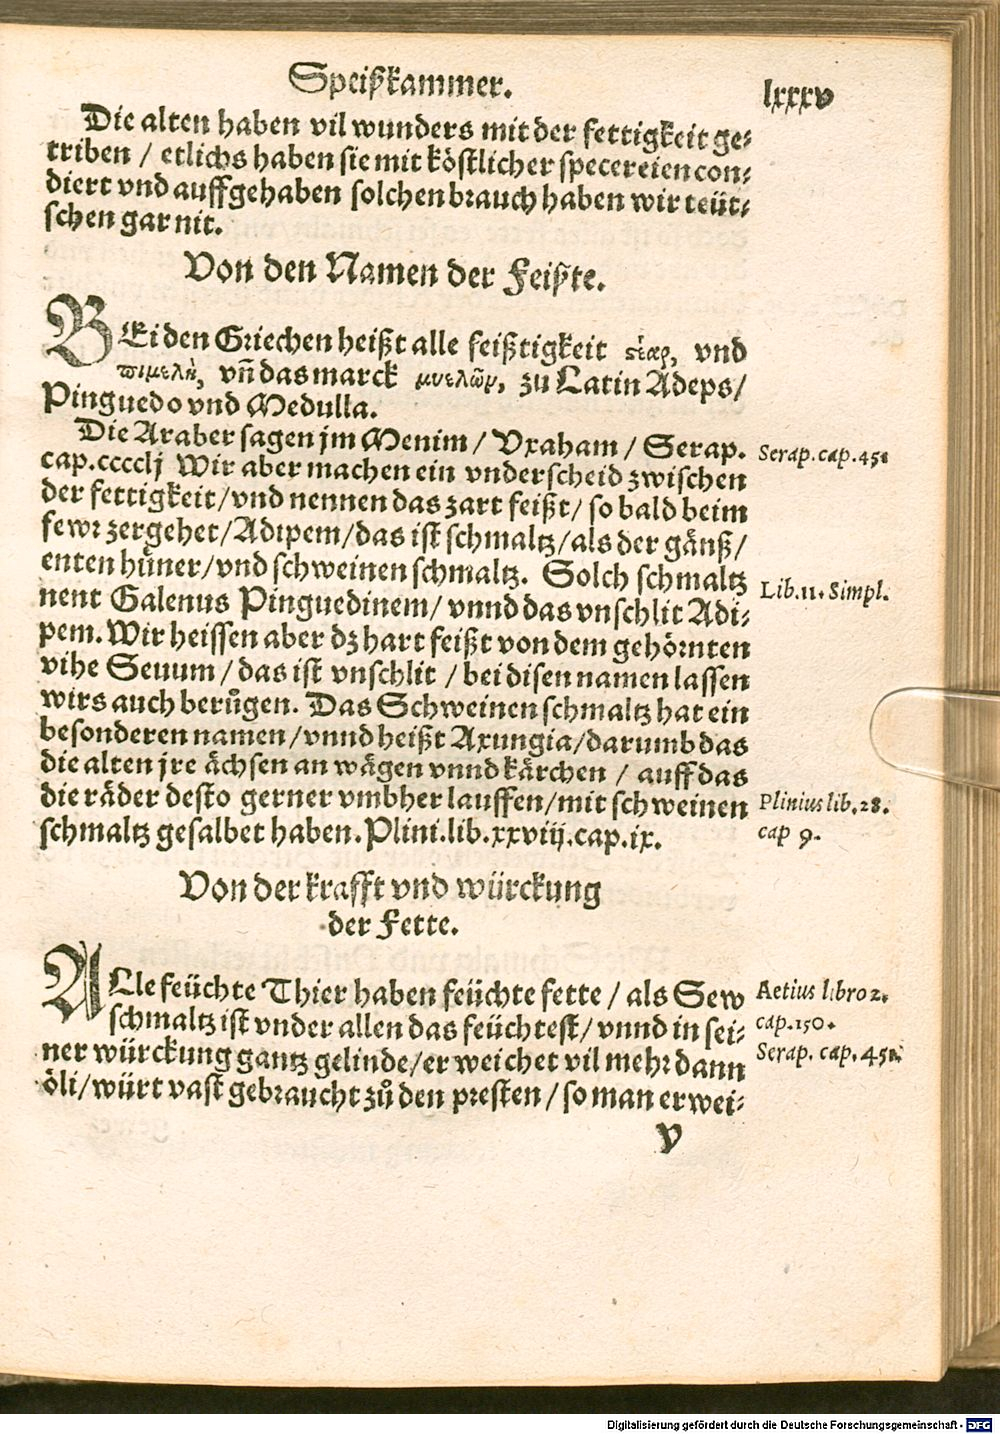 Speißkammer. lxxxv
Die alten haben vil wunders mit der fettigkeit ge⸗
triben / etlichs haben sie mit köstlicher specereien con⸗
diert vnd auffgehaben solchen brauch haben wir teüt⸗
schen gar nit.
Von den Namen der Feißte.
BEi den Griechen heißt alle feißtigkeit στέαρ, vnd
πιμελὴ, vñ das marck μυελὸν, zu Latin Adeps/
Pinguedo vnd Medulla.
Die Araber sagen jm Menim / Vxaham / Serap.
Serap. cap. 451
cap.ccccli Wir aber machen ein vnderscheid zwischen
der fettigkeit/vnd nennen das zart feißt/ so bald beim
fewr zergehet/Adipem/das ist schmaltz/als der gänß/
enten hüner/vnd schweinen schmaltz. Solch schmaltz
Lib. 11. Simpl.
nent Galenus Pinguedinem/ vnnd das vnschlit Adi⸗
pem. Wir heissen aber dz hart feißt von dem gehörnten
vihe Seuum / das ist vnschlit / bei disen namen lassen
wirs auch berůgen. Das Schweinen schmaltz hat ein
besonderen namen/vnnd heißt Axungia/darumb das
die alten jre ächsen an wägen vnnd kärchen / auff das
die räder desto gerner vmbher lauffen/mit schweinen
Plinius lib. 28.
cap 9.
schmaltz gesalbet haben. Plini.lib.xxviij.cap.ix.
Von der krafft vnd würckung
der Fette.
ALle feüchte Thier haben feüchte fette / als Sew
Aetius libro 2.
cap. 150.
schmaltz ist vnder allen das feüchtest/ vnnd in sei⸗
ner würckung gantz gelinde/er weichet vil mehr dann
Serap. cap. 451.
öli/würt vast gebraucht zů den presten / so man erwei⸗
v
Digitalisierung gefördert durch die Deutsche Forschungsgemeinschaft - DFG